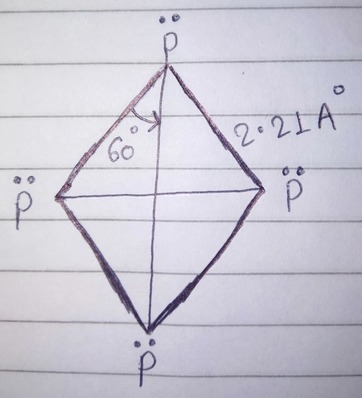 P̈
60°
2.21A°
P̈
P̈
P̈